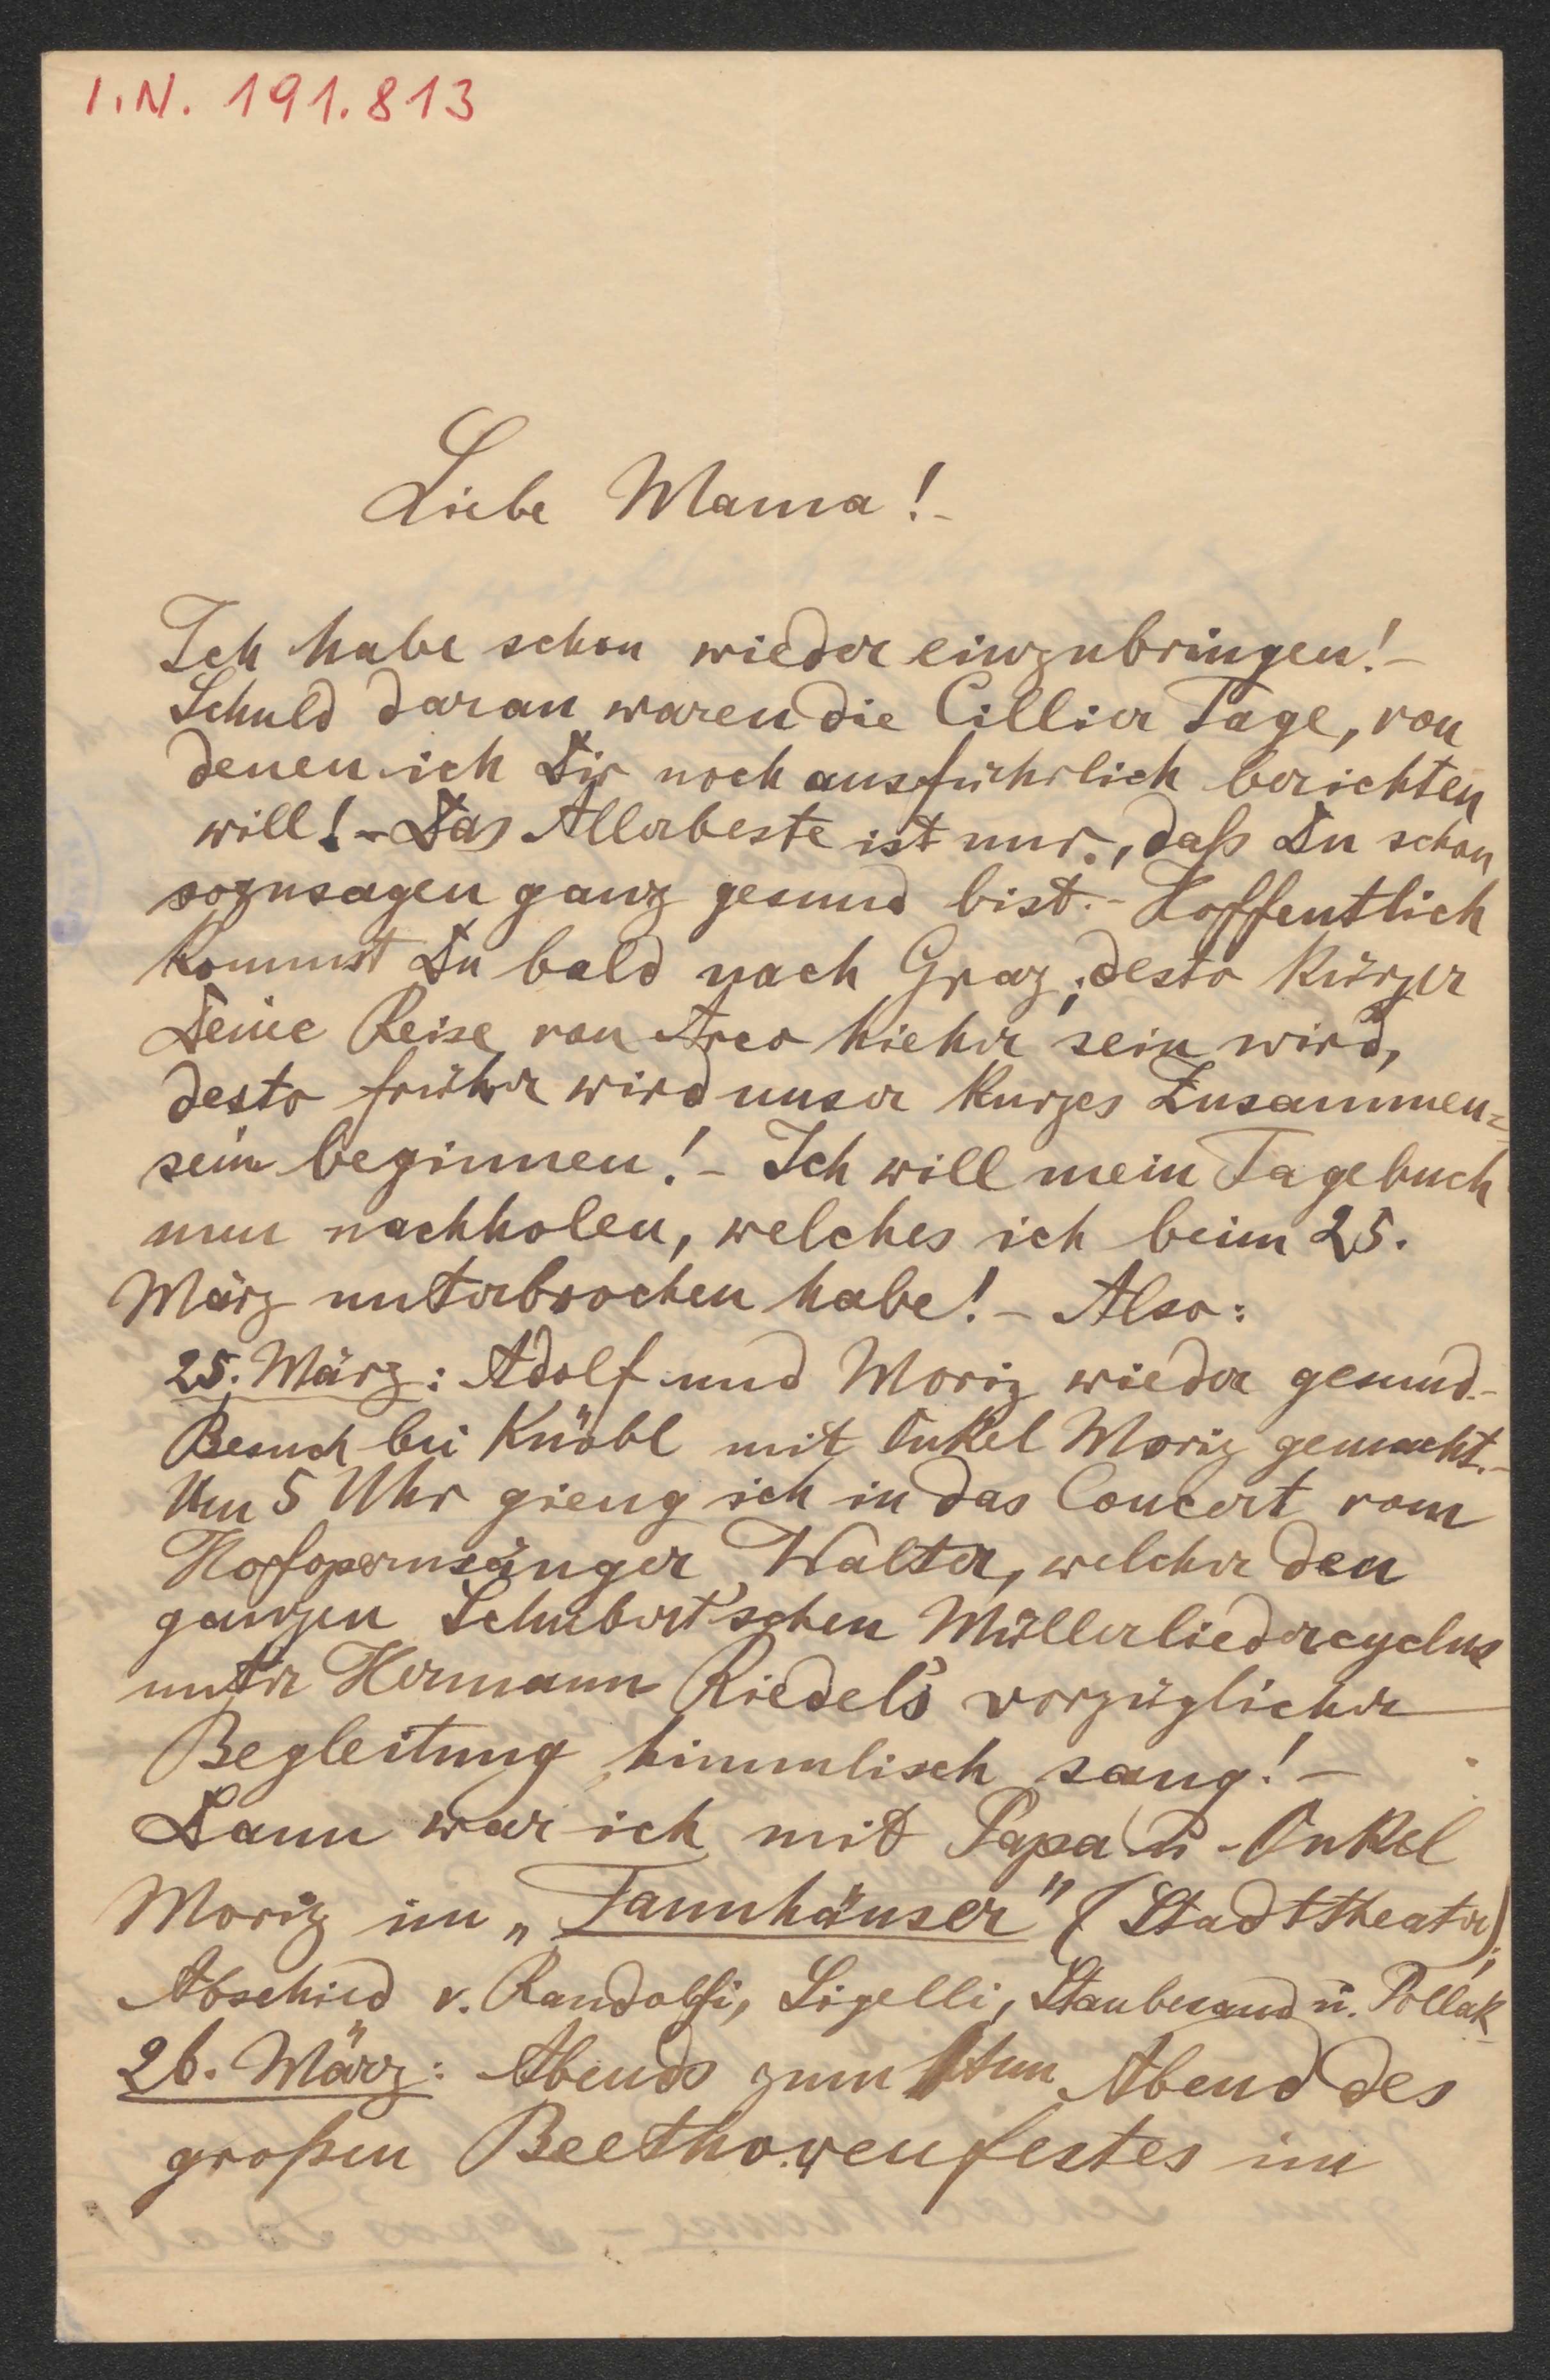 I.N. 191.813
Liebe Mama!-
Ich habe schon wieder einzubringen!-
Schuld daran waren die Cillier Tage, von
denen ich Dir noch ausführlich berichten
will!- Das Allerbeste ist nur, daß Du schon
sozusagen ganz gesund bist.- Hoffentlich
kommst Du bald nach Graz; desto kürzer
Deine Reise von Arco hieher sein wird,
desto früher wird unser kurzes Zusammen=
sein beginnen!- Ich will mein Tagebuch
nun nachholen, welches ich beim 25.
März unterbrochen habe!- Also:
25. März: Adolf und Moriz wieder gesund.-
Besuch bei Knöbl mit Onkel Moriz gemacht.-
Um 5 Uhr gieng ich in das Concert vom
Hofopernsänger Walter, welcher den
ganzen Schubert'schen Müllerliedercyclus
unter Hermann Riedel's vorzüglicher
Begleitung himmlisch sang!-
Dann war ich mit Papa u. Onkel
Moriz im „Tannhäuser" (Stadttheater);
Abschied v. Randolfi, Sigelli, Staubesand u. Pollak-
26. März: Abends zum 1ten Abend des
großen Beethovenfestes im